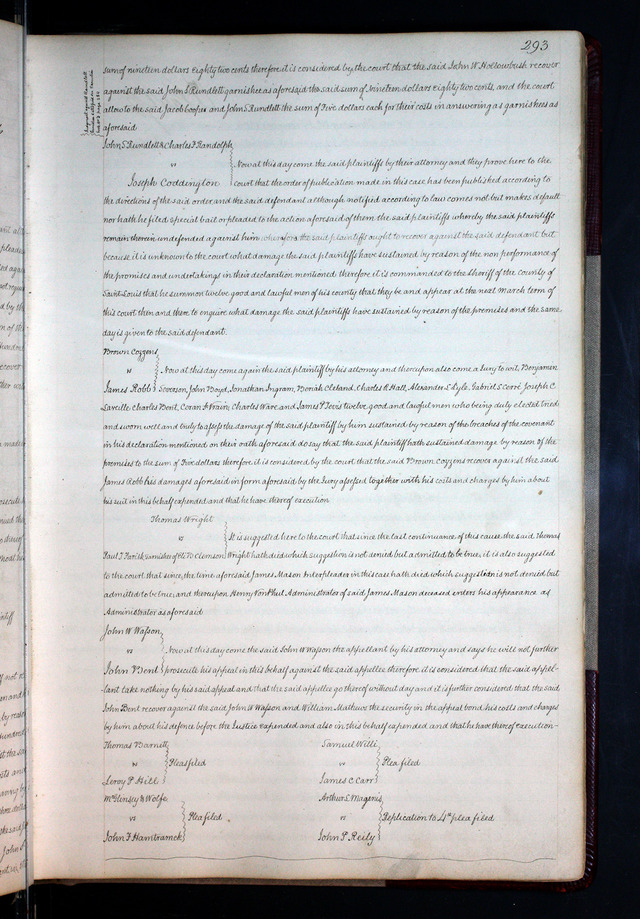 293
sum of nineteen dollars eighty two cents therefore it is considered by the court that the said John W Hollowbush recover
against the said John S Rundlett garnishee as aforesaid the said sum of nineteen dollars eighty two cents, and the court
allow to the said Jacob Cooper and John S Rundlett the sum of Five dollars each for their costs in answering as garnishees as
aforesaid
John S Rundlett & Charles F Randolph
vs Now at this day come the said plaintiffs by their attorney and they prove here to the
Joseph Coddington court that the order of publication made in this case has been published according to
the directions of the said order and the said defendant although notified according to law comes not but makes default
nor hath he filed special bail or pleaded to the action aforesaid of them the said plaintiffs whereby the said plaintiffs
remain therein undefended against him wherefore the said plaintiffs ought to recover against the said defendant but
because it is unknown to the court what damage the said plaintiffs have sustained by reason of the non performance of
the promises and undertakings in their declaration mentioned therefore it is commanded to the Sheriff of the county of
Saint Louis that he summon twelve good and lawful men of his county that they be and appear at the next March term of
this court then and there to enquire what damage the said plaintiffs have sustained by reason of the premises and the same
day is given to the said defendant.
Brown Cozzens
vs Now at this day come again the said plaintiff by his attorney and thereupon also come a Jury to wit, Benjamin
James Robb Severson, John Boyd, Jonathan Ingram, Beriah Cleland, Charles R Hall, Alexander S Lyle, Gabriel S Cerré Joseph C
Laveille Charles Bent, Ceran St Vrain, Charles Ware, and James P Jevis twelve good and lawful men who being duly elected tried
and sworn well and truly to assess the damage of the said plaintiff by him sustained by reason of the breaches of the covenant
in his declaration mentioned on their oath aforesaid do say that the said plaintiff hath sustained damage by reason of the
premises to the sum of Five dollars therefore it is considered by the court that the said Brown Cozzens recover against the said
James Robb his damages aforesaid in form aforesaid by the Jury assessed together with his costs and charges by him about
his suit in this behalf expended and that he have thereof execution
Thomas Wright
vs It is suggested here to the court that since the last continuance of this cause the said Thomas
Paul J Farish Garnishee of Eli W Clemson Wright hath died which suggestion is not denied but admitted to be true, it is also suggested
to the court that since, the time aforesaid James Mason Interpleader in this case hath died which suggestion is not denied but
admitted to be true, and thereupon Henry Von Phul Administrator of said James Mason deceased enters his appearance as
Administrator as aforesaid
John W Wasson
vs Now at this day come the said John W Wasson the appellant by his attorney and says he will not further
John Bent prosecute his appeal in this behalf against the said appellee therefore it is considered that the said appel-
-lant take nothing by his said appeal and that the said appellee go thereof without day and it is further considered that the said
John Bent recover against the said John W Wasson and William Mathews the security in the appeal bond his costs and charges
by him about his defence before the Justice expended and also in this behalf expended and that he have thereof execution-
Thomas Barnett
vs Pleas filed
Leroy P Hill
Samuel Willi
vs Plea filed
James C Carr
McGinsey & Wolfe
vs Plea filed
John F Hamtramck
Arthur L Magenis
vs Replication to 4th plea filed
John P Reily